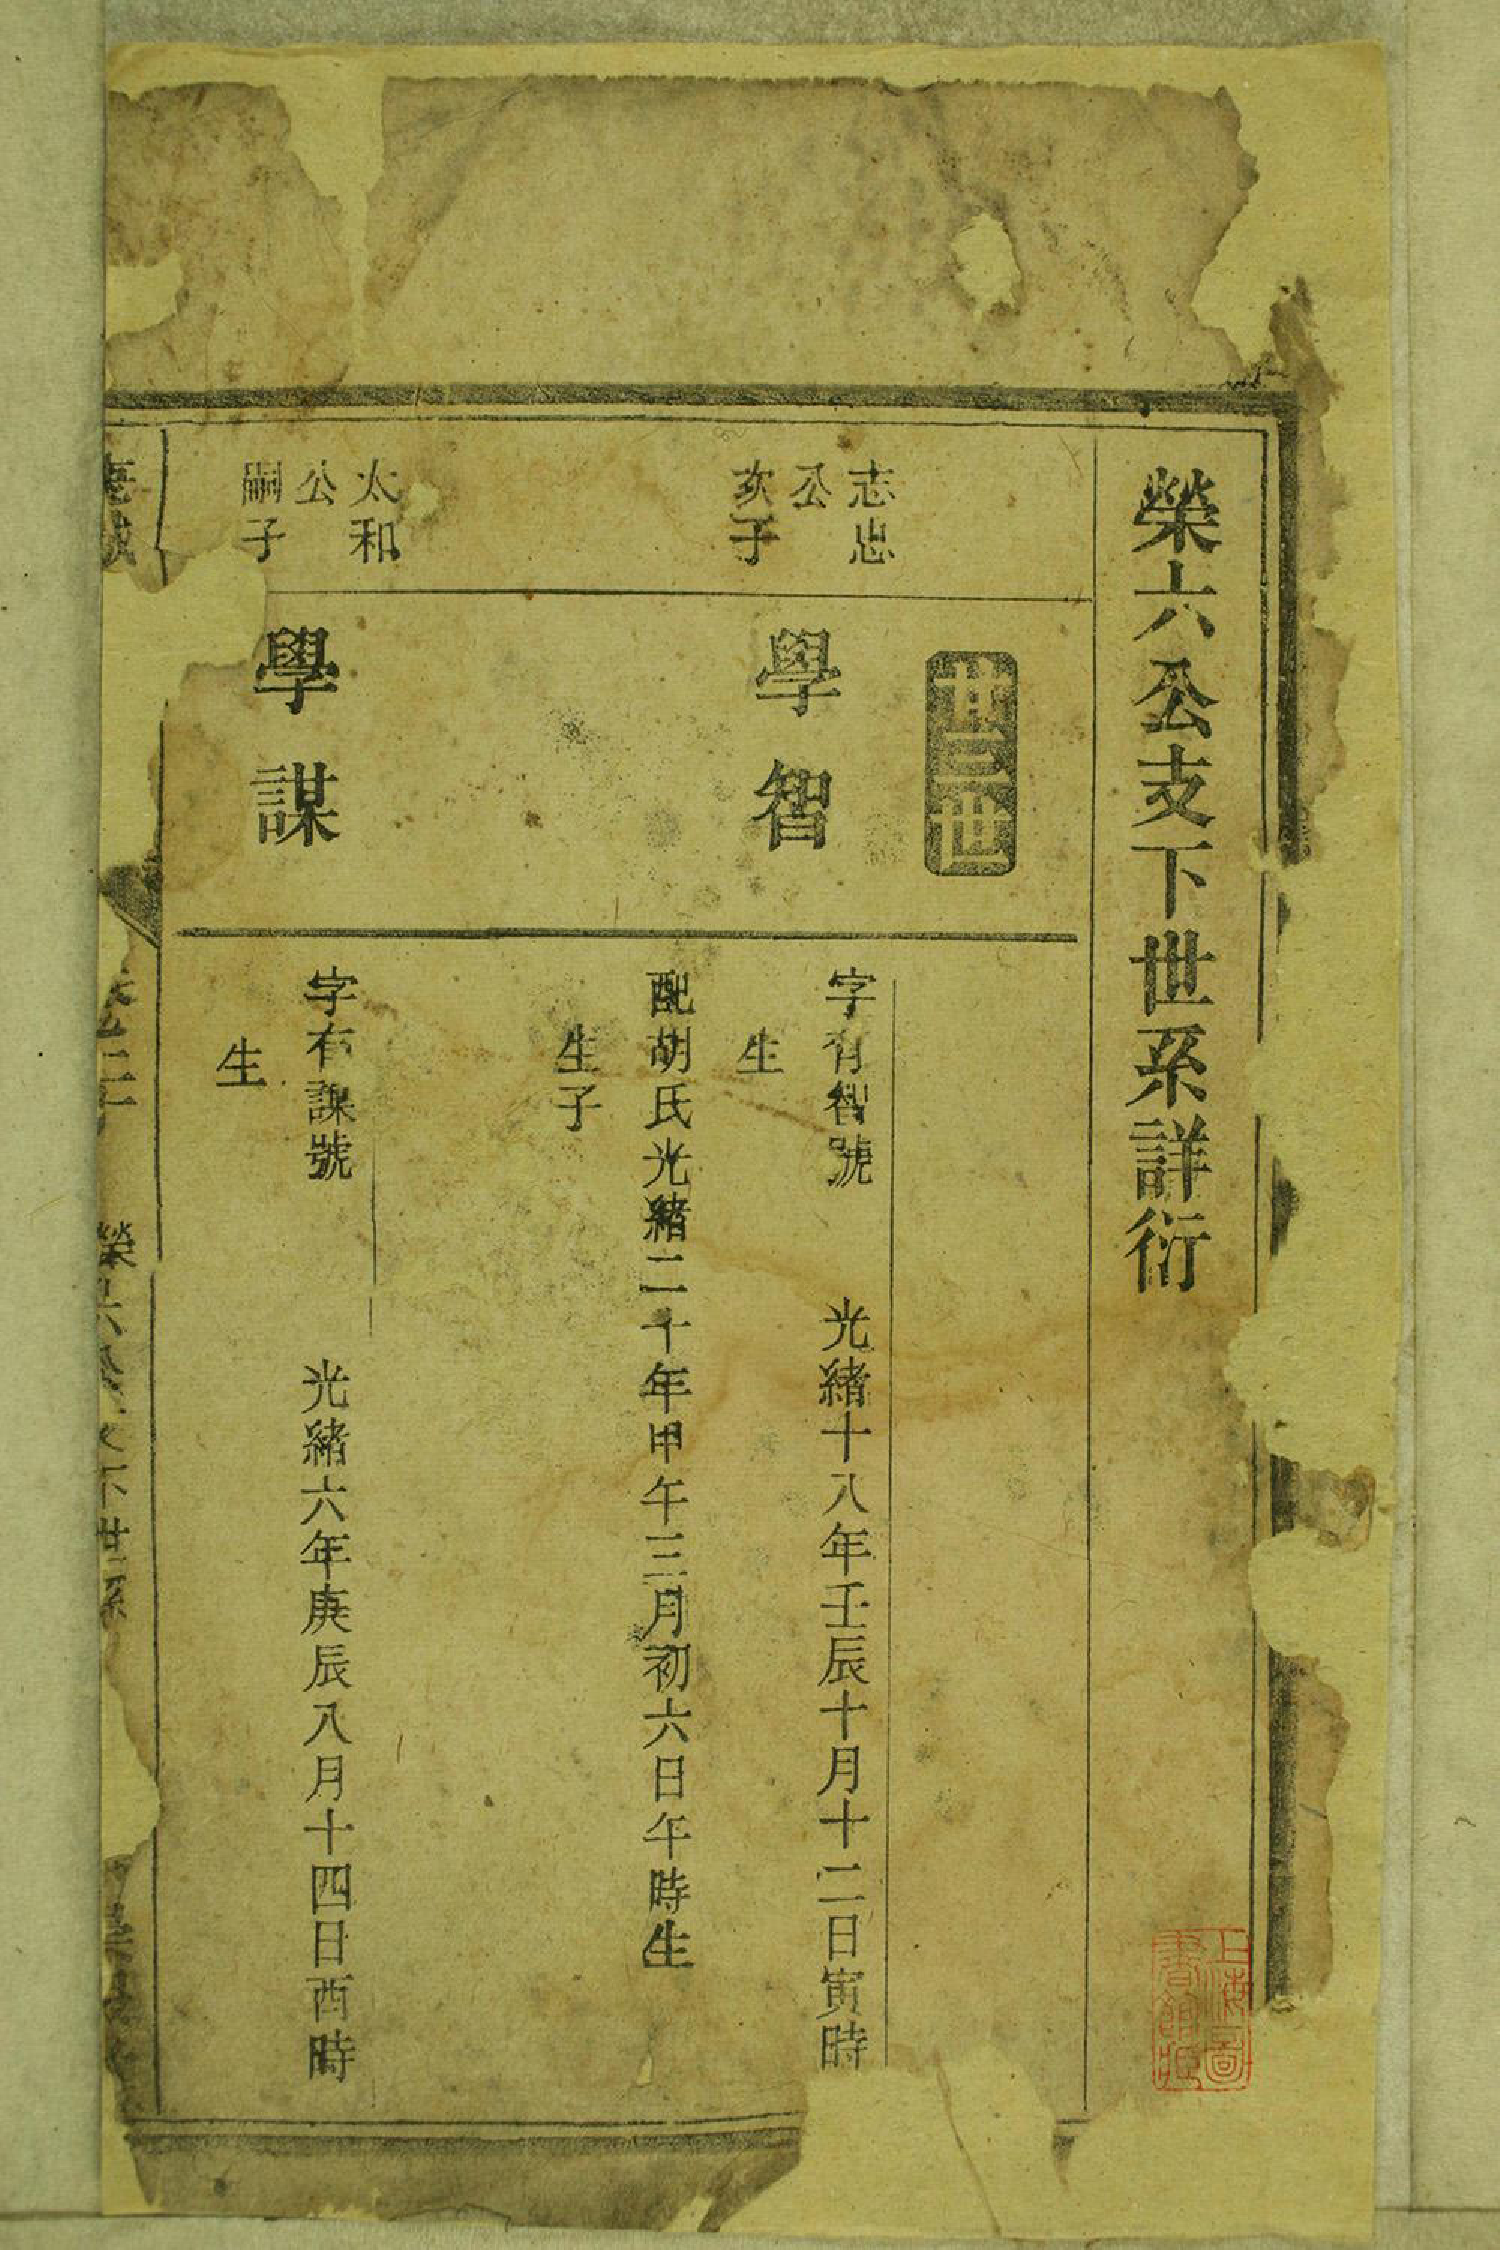 榮六公支下世系詳衍
廿三世
志忠
公
次子
學智
字有智號　光緒十八年壬辰十月十二日寅時
生
配胡氏光緒二十年甲午三月初六日午時生
生子
太和
公
嗣子
學謀
字有謀號　光緒六年庚辰八月十四日酉時
生
榮六公支下世系
上海圖
書館藏